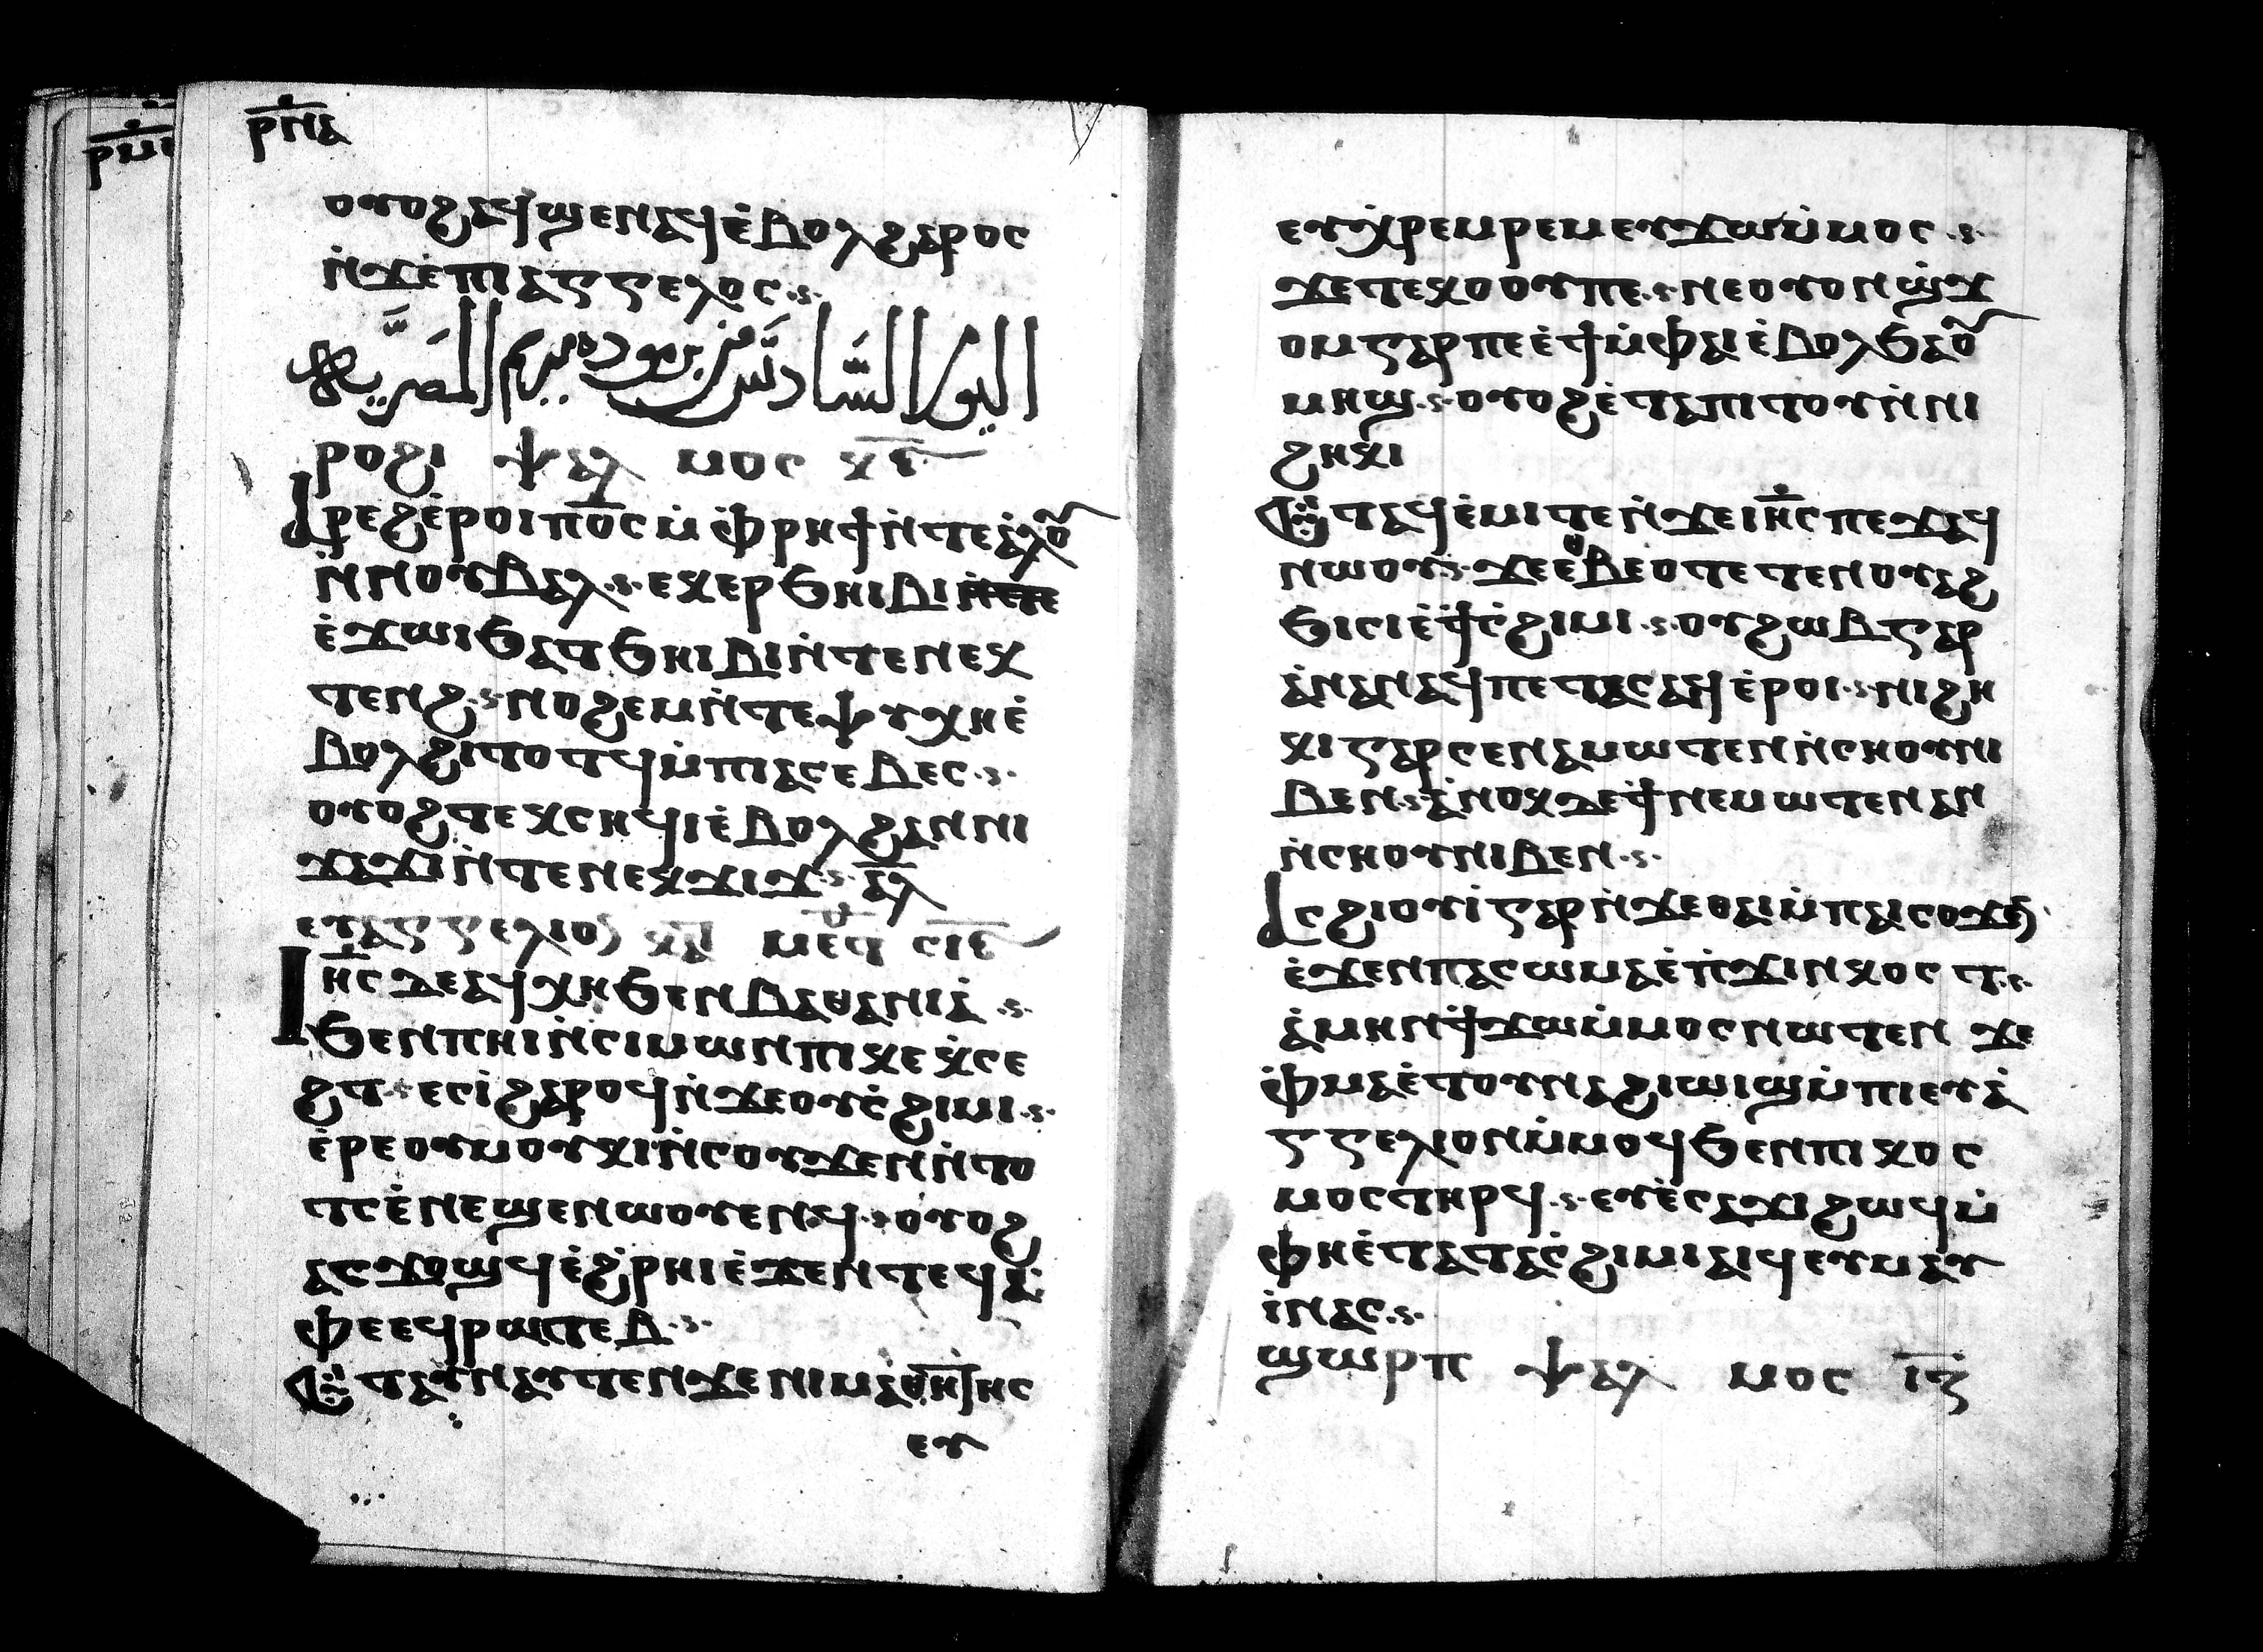 ⲣⲙ
ⲣⲛⲇ
ⲟⲩⲟϩ ⲁϥϣⲉⲛⲁϥ ⲉ̀ⲃⲟⲗ ϩⲁⲣⲟⲥ
ⲛ̀ϫⲉ ⲡⲓⲁⲅⲅⲉⲗⲟⲥ
اليوم السَّادس من برموده مريم المصريَّه
ⲣⲟϩⲓ ⲯⲁⲗ ⲙⲟⲥ
ⲁ̀ⲣⲉϩ ⲉ̀ⲣⲟⲓ ⲡⲟ̅ⲥ̅ ⲙ̀ⲫⲣⲏϯ ⲛ̀ⲧⲉ ⲁ̀ⲗⲟⲩ
ⲛ̀ⲛⲟⲩⲃⲁⲗ ⲉⲕⲉⲣϧⲏⲓⲃⲓ ⲛ̀ⲧⲉⲛⲉ
ⲉ̀ϫⲱⲓ ϧⲁⲧϧⲏⲓⲃⲓ ⲛ̀ⲧⲉⲛⲉⲕ
ⲧⲉⲛϩ ⲛⲟϩⲉⲙ ⲛ̀ⲧⲉⲯⲩⲭⲏ ⲉ̀
ⲃⲟⲗϩⲓⲧⲟⲧϥ ⲙ̀ⲡⲓⲁⲥⲉⲃⲉⲥ
ⲟⲩⲟϩ ⲧⲉⲕⲥⲏϥⲓ ⲉ̀ⲃⲟⲗϩⲁⲛⲛⲓ
ϫⲁϫⲓ ⲛ̀ⲧⲉⲛⲉⲕϫⲓϫ ⲁ̅ⲗ̅
ⲉⲩⲁⲅⲅⲉⲗⲓⲟⲛ ⲕⲁ ⲙⲉⲧ ⲥⲓⲉ
Ⲓⲏⲥ ⲇⲉ ⲁϥⲭⲏ ϧⲉⲛ ⲃⲁⲑⲁⲛⲓⲁ̀
ϧⲉⲛ ⲡⲏⲓ ⲛ̀ⲥⲓⲙⲱⲛ ⲡⲓⲕⲉⲕ̀ⲥⲉ
ϩⲧ ⲉⲥⲓ̀ ϩⲁⲣⲟϥ ⲛ̀ϫⲉ ⲟⲩⲥ̀ϩⲓⲙⲓ
ⲉ̀ⲣⲉ ⲟⲩⲙⲟⲩⲕⲓ ⲛ̀ⲥⲟϫⲉⲛ ⲛ̀ⲧⲟ
ⲧⲥ ⲉ̀ⲛⲉϣⲉⲛⲥⲟⲩⲉⲛϥ ⲟⲩⲟϩ
ⲁⲥϫⲟϣϥ ⲉ̀ϩ̀ⲣⲏⲓ ⲉ̀ϫⲉⲛ ⲧⲉϥⲁ̀
ⲫⲉ ⲉϥⲣⲱⲧⲉⲃ
Ⲉⲧⲁⲩⲛⲁⲩ ⲧⲉⲛ ϫⲉ ⲛⲓⲙⲁⲑⲏⲧⲏⲥ
ⲉⲩ
ⲉⲩⲭ̀ⲣⲉⲙⲣⲉⲙ ⲉⲩϫⲱ ⲙ̀ⲙⲟⲥ
ϫⲉ ⲡⲉⲕⲟ ⲟⲩⲡⲉ ⲛⲉ ⲟⲩⲟⲛ ϣ̀ϫ
ⲟⲙ ⲅⲁⲣ ⲡⲉ ⲉ̀ϯ ⲙ̀ⲫⲁⲓ ⲉ̀ⲃⲟⲗ ϧⲁⲟⲩ
ⲙⲏϣ ⲟⲩⲟϩ ⲉ̀ⲧⲁⲡⲓⲧⲟⲩ ⲛ̀ⲛⲓ
ϩⲏⲕⲓ
Ⲉⲧⲁϥⲉ̀ⲙⲓ ⲧⲉⲛ ϫⲉ ⲓⲏⲥ ⲡⲉϫⲁϥ
ⲛⲱⲟⲩ ϫⲉ ⲉⲑⲃⲉⲟ ⲧⲉⲧⲉⲛⲟⲩⲁϩ
ϧⲓⲥⲓ ⲉ̀ϯⲥ̀ϩⲓⲙⲓ ⲟⲩϩⲱⲃ ⲅⲁⲣ
ⲁ̀ⲛⲁⲛⲁϥ ⲡⲉⲧⲁⲥⲁⲓϥ ⲉ̀ⲣⲟⲓ ⲛⲓϩⲏ
ⲕⲓ ⲅⲁⲣ ⲥⲉⲛⲉⲙⲱⲧⲉⲛ ⲛ̀ⲥⲏⲟⲩ ⲛⲓ
ⲃⲉⲛ ⲁ̀ⲛⲟⲕ ⲇⲉ ϯⲛⲉⲙⲱⲧⲉⲛ ⲁⲛ
ⲛ̀ⲥⲏⲟⲩ ⲛⲓⲃⲉⲛ
Ⲁⲥϩⲓⲟⲩⲓ̀ ⲅⲁⲣ ⲛ̀ϫⲉ ⲑⲁⲓ ⲙ̀ⲡⲁⲓⲥⲟϫⲉⲛ
ⲉ̀ϫⲉⲛ ⲡⲁⲥⲱⲙⲁ ⲉ̀ⲡ̀ϫⲓⲛⲕⲟⲥⲧ
ⲁ̀ⲙⲏⲛ ϯϫⲱ ⲙ̀ⲙⲟⲥ ⲛⲱⲧⲉⲛ ϫⲉ
ⲫ̀ⲙⲁ ⲉ̀ⲧⲟⲩⲛⲁϩⲓⲱⲓϣ ⲙ̀ⲡⲓⲉⲩⲁ̀
ⲅⲅⲉⲗⲓⲟⲛ ⲙ̀ⲙⲟϥ ϧⲉⲛ ⲡⲓⲕⲟⲥ
ⲙⲟⲥ ⲧⲏⲣϥ ⲉⲩⲉ̀ⲥⲁϫⲓ ϩⲱϥ ⲙ̀
ⲫⲏ ⲉ̀ⲧⲁ ⲧⲁⲓⲥ̀ϩⲓⲙⲓ ⲁⲓϥ ⲉⲩⲙⲉⲩ
ⲓ̀ ⲛⲁⲥ
ϣⲱⲣⲡ ⲯⲁⲗ ⲙⲟⲥ ⲓⲍ